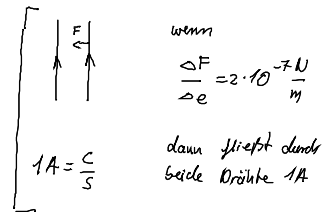 F
wenn
ΔF/Δe = 2·10⁻⁷ N/m
dann fließt durch
beide Drähte 1A
1A = C/s